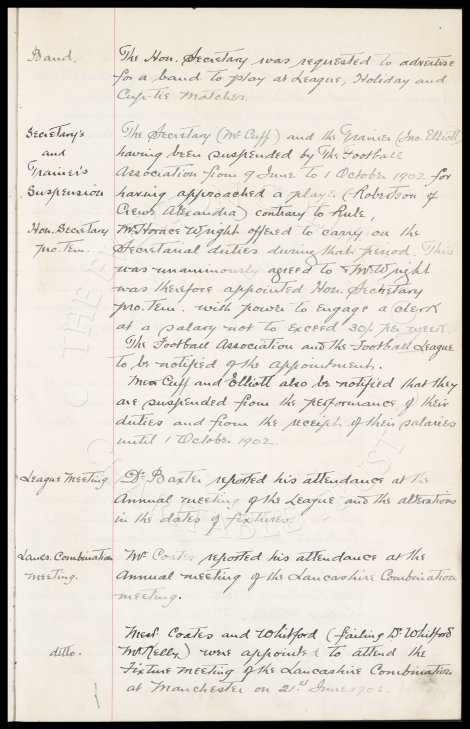 Band.
The Hon. Secretary was requested to advertise
for a band to play at League, Holiday and
Cup-tie matches.
Secretary's
and
Trainer's
Suspension
The Secretary (Mr Cuff) and the Trainer (Jno. Elliott)
having been suspended by The Football
Association from 9 June to 1 October 1902 for
having approached a player (Robertson of
Crewe Alexandra) contrary to Rule,
Hon. Secretary
pro. tem.
Mr Horace Wright offered to carry on the
Secretarial duties during that period. This
was unanimously agreed to & Mr Wright
was therefore appointed Hon. Secretary
pro. tem. with power to engage a clerk
at a salary not to exceed 30/- per week.
The Football Association and the Football League
to be notified of the appointment.
Mess Cuff and Elliott also be notified that they
are suspended from the performance of their
duties and from the receipt of their salaries
until 1 October 1902.
League Meeting
Dr Baxter reported his attendance at the
Annual meeting of the League and the alterations
in the dates of fixtures.
Lancs. Combination
meeting.
Mr Coates reported his attendance at the
Annual meeting of the Lancashire Combination
meeting.
ditto.
Mess. Coates and Whitford (failing Dr Whitford
Mr Kelly) were appointed to attend the
Fixture meeting of the Lancashire Combination
at Manchester on 21st June 1902.